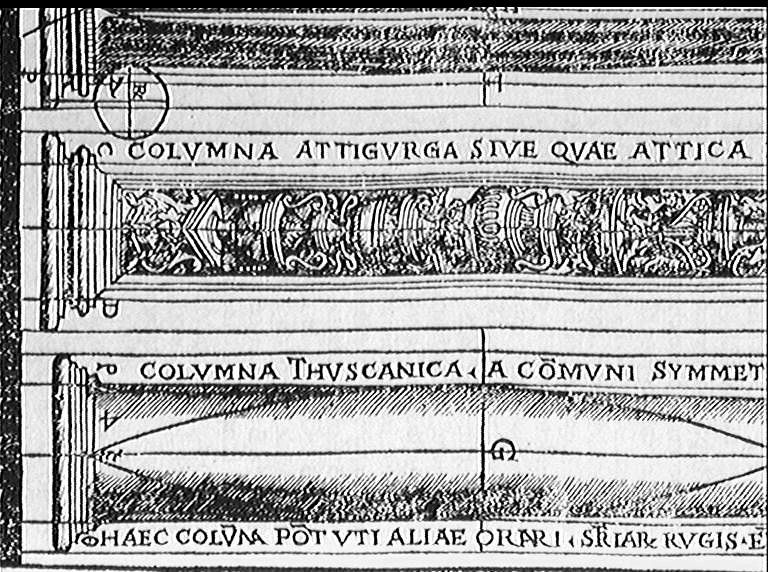 COLVMNA ATTIGVRGA SIVE QVAE ATTICA
COLVMNA THVSCANICA A CŌMVNI SYMMET
HAEC COLV̄NA PŌT VTI ALIAE ORARI
RVGIS